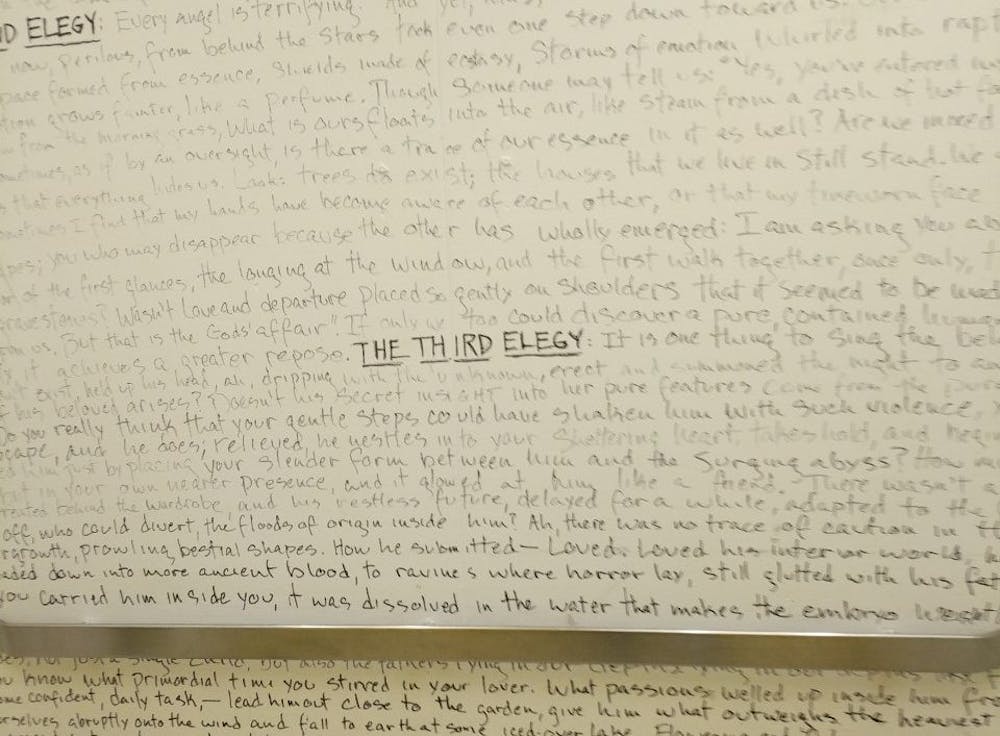 D ELEGY: Every angel is terrifying. And yet,
now, perilous, from behind the stars took even one step down toward us.
pace formed from essence, shields made of ecstasy, storms of emotion whirled into rapt
tion grows fainter, like a perfume. Though someone may tell us: "Yes, you've entered my
from the morning grass, What is ours floats into the air, like steam from a dish of hot fo
ometimes, as if by an oversight, is there a trace of our essence in it as well? Are we mixed
s that everything hides us. Look: trees do exist; the houses that we live in still stand. We
ometimes I find that my hands have become aware of each other, or that my timeworn face
apes; you who may disappear because the other has wholly emerged: I am asking you ab
of the first glances, the longing at the window, and the first walk together, once only, t
gravestones? Wasn't love and departure placed so gently on shoulders that it seemed to be mad
us. But that is the Gods' affair" If only we too could discover a pure, contained
it achieves a greater repose. THE THIRD ELEGY: It is one thing to sing the bel
held up his head, ah, dripping with the unknown, erect and summoned the night to
his beloved arises? Doesn't his secret insight into her pure features come from the
Do you really think that your gentle steps could have shaken him with such violence,
cape, and he does; relieved, he nestles into your sheltering heart, takes hold, and begin
ed him just by placing your slender form between him and the surging abyss? How
but in your own nearer presence, and it glowed at him like a friend. There wasn't a
treated behind the wardrobe, and his restless future, delayed for a while, adapted to the
off, who could divert, the floods of origin inside him? Ah, there was no trace of caution in th
rgrowth, prowling bestial shapes. How he submitted— Loved. Loved his interior world, h
aded down into more ancient blood, to ravines where horror lay, still glutted with his fat
you carried him inside you, it was dissolved in the water that makes the embryo weight
not just a single child, but also the fathers lying in our depths
u know what primordial time you stirred in your lover. What passions welled up inside him fro
ome confident, daily task,— lead him out close to the garden, give him what outweighs the heaviest
rselves abruptly onto the wind and fall to earth at some iced-over lake.